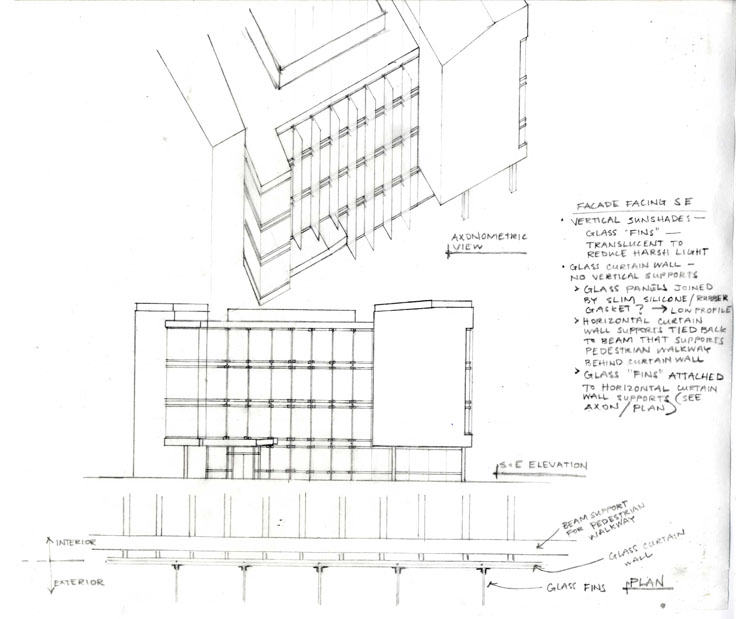 FACADE FACING SE
• VERTICAL SUNSHADES —
GLASS "FINS" —
TRANSLUCENT TO
REDUCE HARSH LIGHT
• GLASS CURTAIN WALL —
NO VERTICAL SUPPORTS
> GLASS PANELS JOINED
BY SLIM SILICONE/RUBBER
GASKET? → LOW PROFILE
> HORIZONTAL CURTAIN
WALL SUPPORTS TIED BACK
TO BEAM THAT SUPPORTS
PEDESTRIAN WALKWAY
BEHIND CURTAIN WALL
> GLASS "FINS" ATTACHED
TO HORIZONTAL CURTAIN
WALL SUPPORTS (SEE
AXON/PLAN)
AXONOMETRIC
VIEW
S-E ELEVATION
BEAM SUPPORT
FOR PEDESTRIAN
WALKWAY
INTERIOR
GLASS CURTAIN
WALL
EXTERIOR
GLASS FINS
PLAN